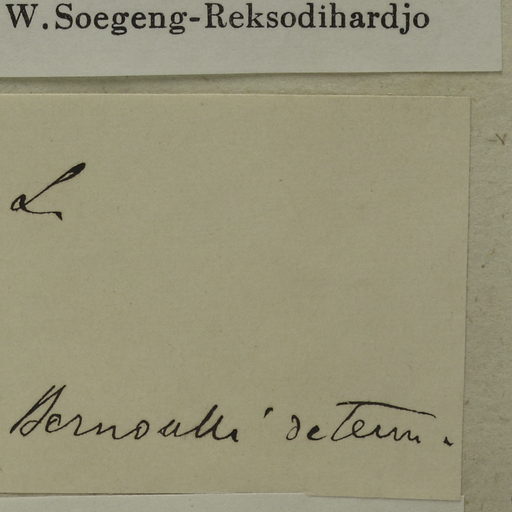 W.Soegeng-Reksodihardjo
L
Bernoulli determ.